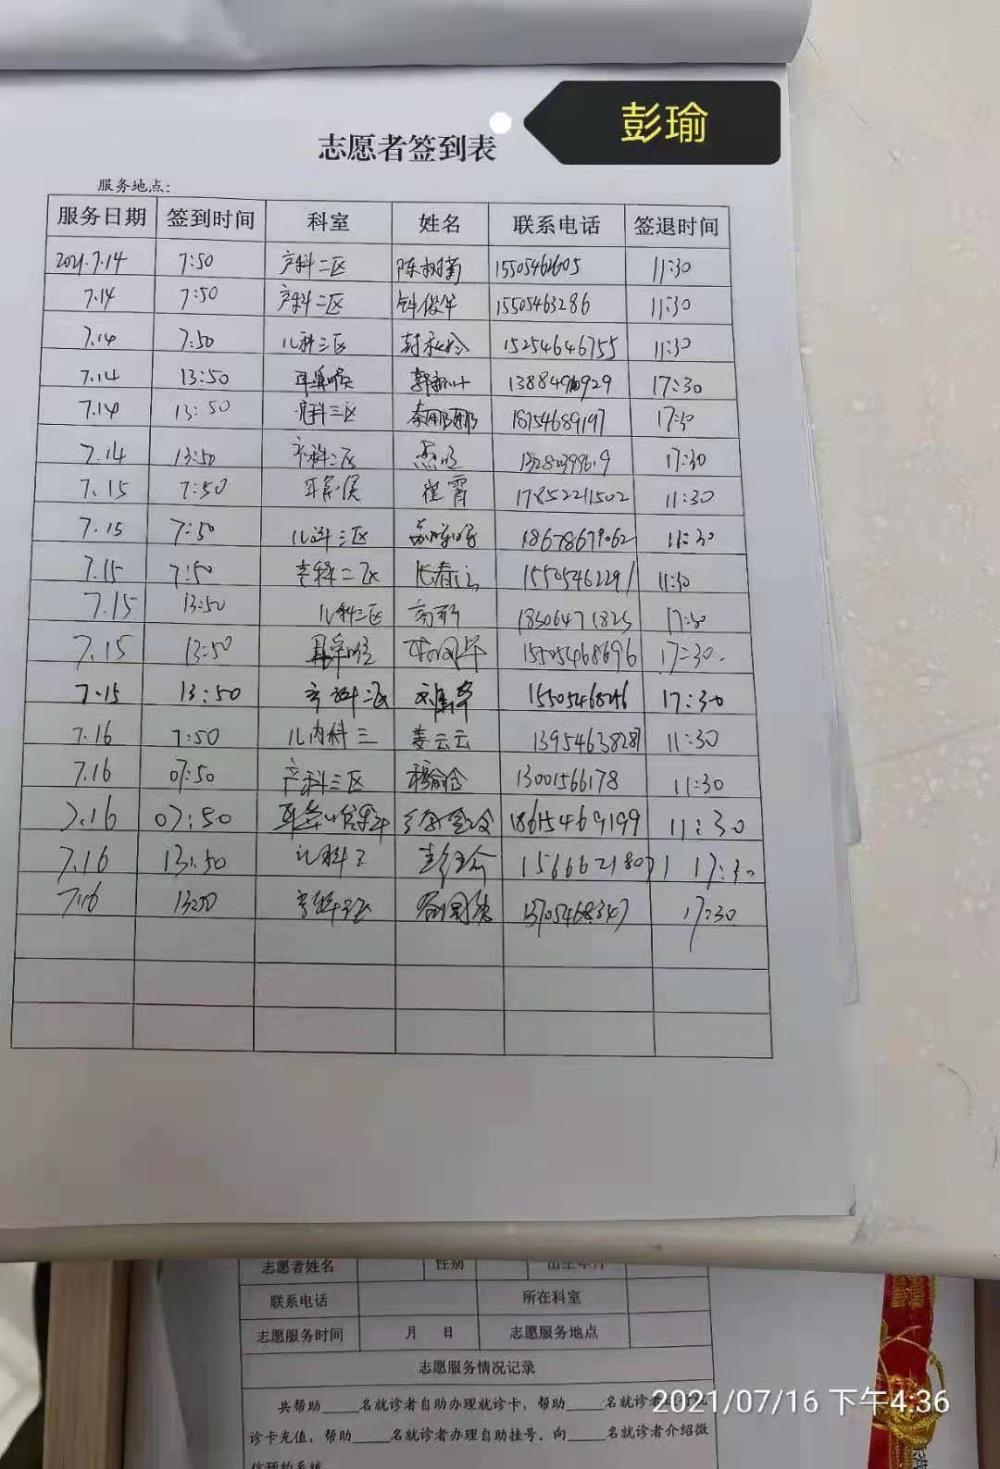 彭瑜
志愿者签到表
服务地点：
服务日期 签到时间 科室 姓名 联系电话 签退时间
2021.7.14 7:50 产科二区 15505462605 11:30
7.14 7:50 产科二区 钟俊华 15505463286 11:30
7.14 7:50 儿科三区 15254646755 11:30
7.14 13:50 耳鼻喉 17:30
7.14 13:50 三区 18754689197 17:30
7.14 13:50 产科二区 17:30
7.15 7:50 崔霄 17852211502 11:30
7.15 7:50 儿科三区 18678679062 11:30
7.15 7:50 产科二区 15505462291 11:30
7.15 13:50 儿科三区 18306471823 17:30
7.15 13:50 耳鼻喉 15505468696 17:30.
7.15 13:50 产科二区 15505468246 17:30
7.16 7:50 儿内科三 姜云云 13954638281 11:30
7.16 07:50 产科三区 13001566178 11:30
7.16 07:50 18615469199 11:30
7.16 13:50 儿科三 彭瑜 15666218071 17:30
7.16 13:50 13705468347 17:30
志愿者姓名 性别
联系电话 所在科室
志愿服务时间 月 日 志愿服务地点
志愿服务情况记录
共帮助____名就诊者自助办理就诊卡，帮助____名就诊者
诊卡充值，帮助____名就诊者办理自助挂号。向____名就诊者介绍微
2021/07/16 下午4:36